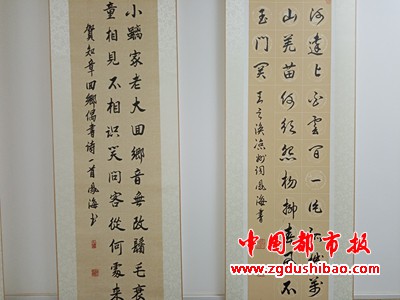 河遠上白雲間一片孤城萬
山羌笛何須怨楊柳春風不
玉門关
王之渙涼州詞海書
小離家老大回鄉音無改鬢毛衰
童相見不相識笑問客從何處來
賀知章回鄉偶書詩一首海書
中国都市报
www.zgdushibao.com